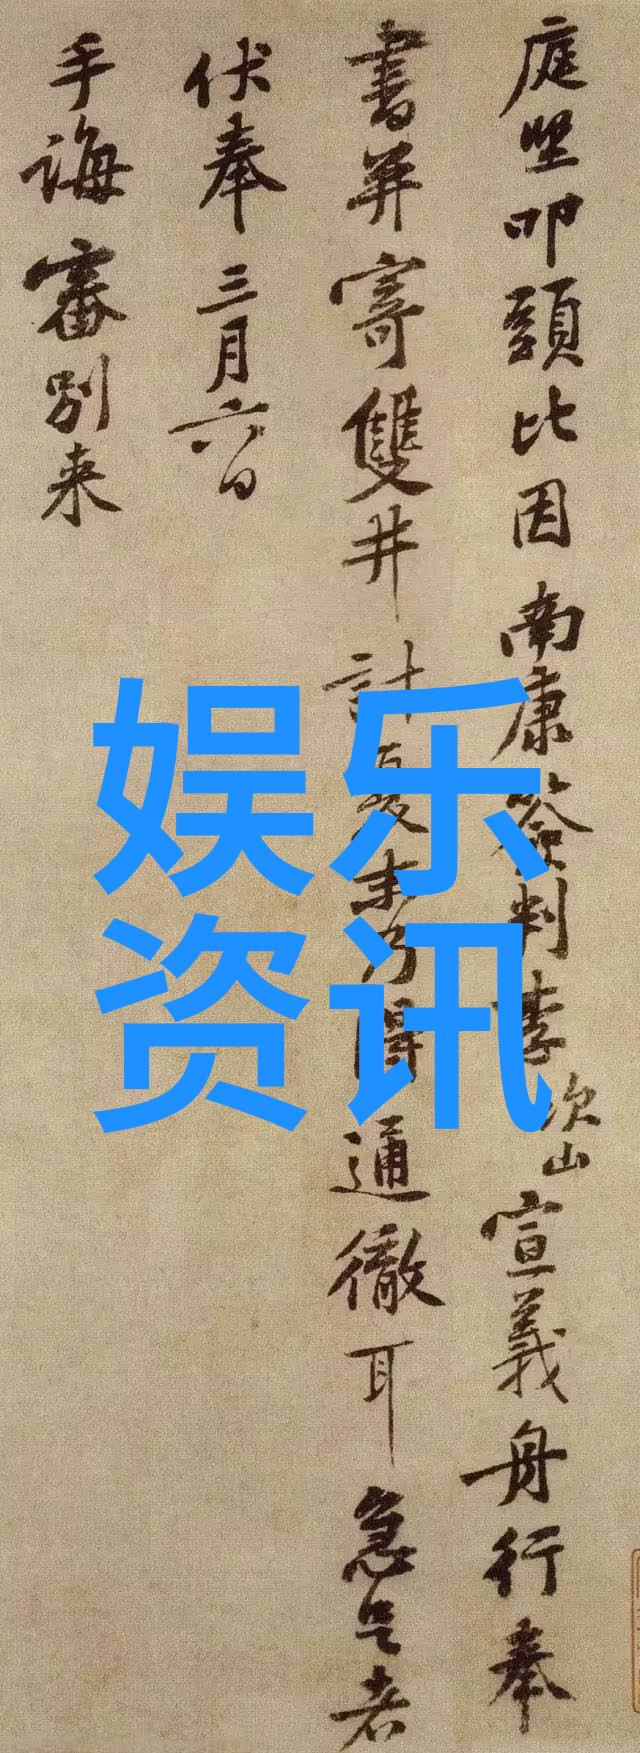 庭堅叩頭比因南康簽判李次山宣義舟行奉
書并寄雙井計夏末乃得通徹耳急足者
伏奉三月六日
手誨審別来
娱乐
资讯